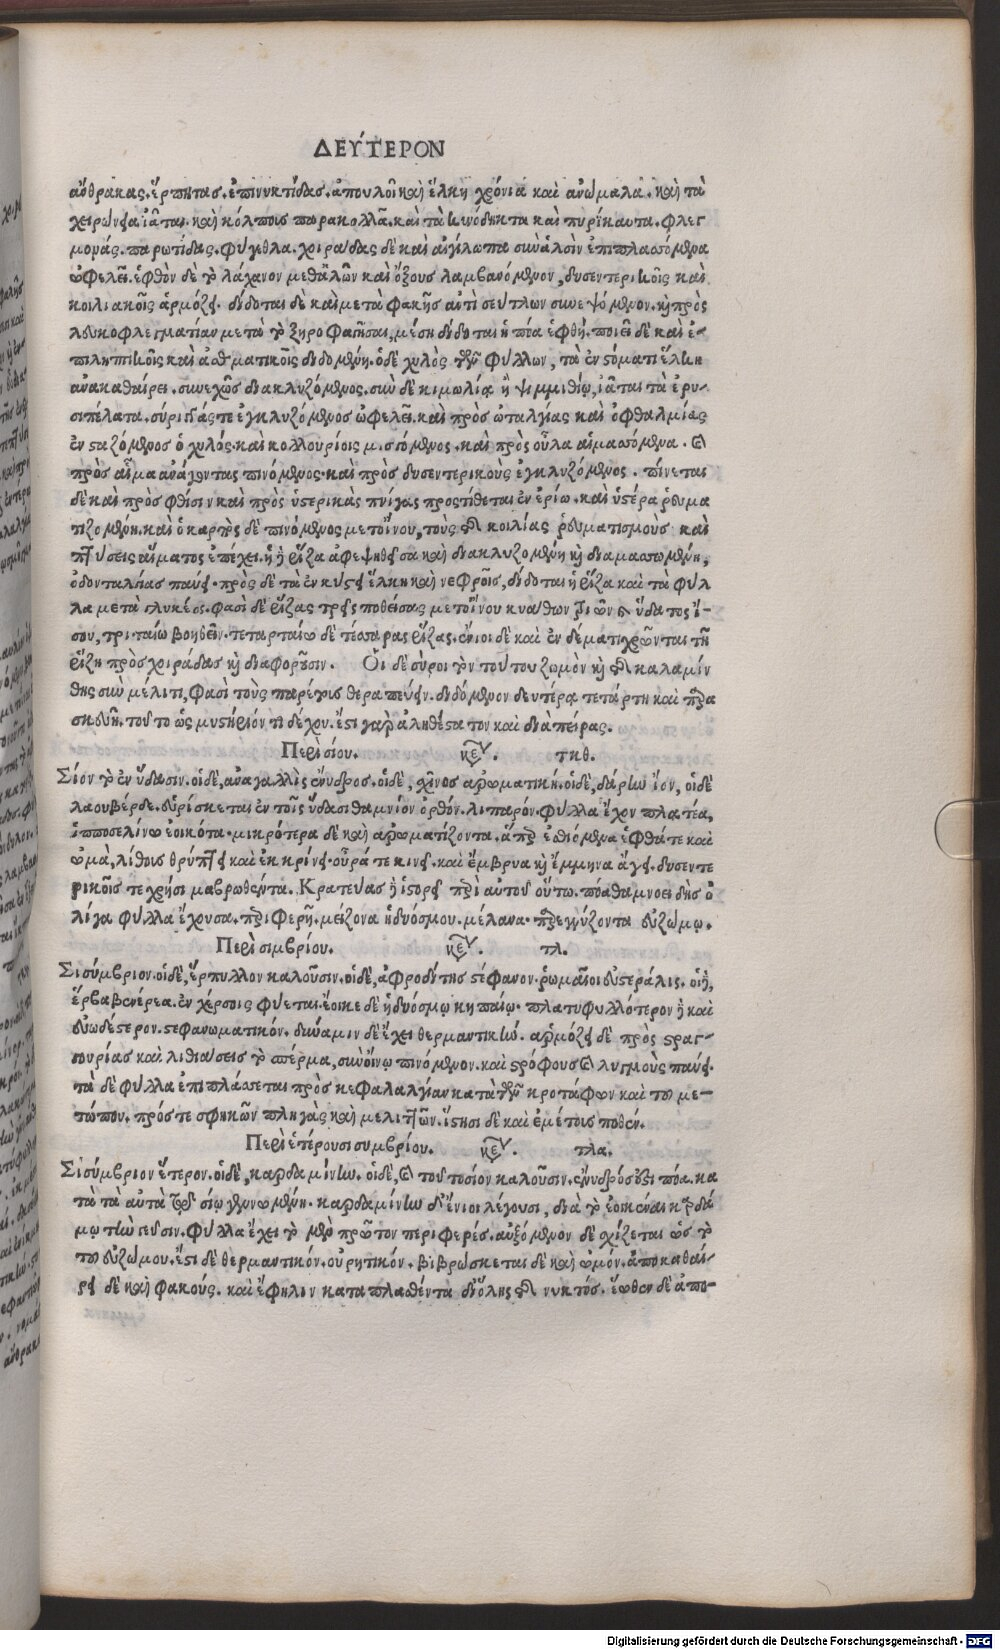 ΔΕΎΤΕΡΟΝ
ἄνθρακας. ἕρπητας. ἐπινυκτίδας. ἀπουλοῖ καὶ ἕλκη χρόνια καὶ ἀνώμαλα. καὶ τὰ
χειρώνεια ἰᾶται. καὶ κόλπους παρακολλᾶ. καὶ τὰ κυνόδηκτα καὶ πυρίκαυτα. φλεγ
μονάς. παρωτίδας. φύγεθλα. χοιράδας δὲ καὶ αἰγίλωπα σὺν ἁλσὶν ἐπιπλασσόμενα
ὠφελεῖ. ἑφθὸν δὲ τὸ λάχανον μεθ' ἁλῶν καὶ ὄξους λαμβανόμενον, δυσεντερικοῖς καὶ
κοιλιακοῖς ἁρμόζει. δίδοται δὲ καὶ μετὰ φακῆς ἀντὶ σεύτλων συνεψομενον. καὶ πρὸς
λευκοφλεγματίαν μετὰ τὸ ξηροφαγῆσαι, μέση δίδοται ἡ πόα ἑφθή. ποιεῖ δὲ καὶ ἐ-
πιληπτικοῖς καὶ ἀσθματικοῖς διδομένη. ὁ δὲ χυλὸς τῶν φύλλων, τὰ ἐν στόματι ἕλκη
ἀνακαθαίρει. συνεχῶς διακλυζόμενος. σὺν δὲ κιμωλίᾳ ἢ ψιμμιθίῳ, ἰᾶται τὰ ἐρυ-
σιπέλατα. σύριγγάς τε ἐγκλυζόμενος ὠφελεῖ. καὶ πρὸς ὠταλγίας καὶ ὀφθαλμίας
ἐνσταζόμενος ὁ χυλός. καὶ κολλουρίοις μισγόμενος. καὶ πρὸς οὖλα αἱμασσόμενα. καὶ
πρὸς αἷμα ἀνάγοντας πινόμενος. καὶ πρὸς δυσεντερικοὺς ἐγκλυζόμενος. πίνεται
δὲ καὶ πρὸς φθίσιν καὶ πρὸς ὑστερικὰς πνίγας προστίθεται ἐν ἐρίῳ. καὶ ὑστέρα ῥευμα
τιζομένη. καὶ ὁ καρπὸς δὲ πινόμενος μετ' οἴνου, τοὺς τῆς κοιλίας ῥευματισμοὺς καὶ
πτύσεις αἵματος ἐπέχει. ἡ δὲ ῥίζα ἀφεψηθεῖσα καὶ διακλυζομένη καὶ διαμασσομένη,
ὀδονταλγίας παύει. πρὸς δὲ τὰ ἐν κύστει ἕλκη καὶ νεφροῖς, δίδοται ἡ ῥίζα καὶ τὰ φύλ
λα μετὰ γλυκέος. φασὶ δὲ ῥίζας τρεῖς ποθείσας μετ' οἴνου κυάθων τριῶν καὶ ὕδατος ἴ-
σου, τριταίῳ βοηθεῖν. τεταρταίῳ δὲ τέσσαρας ῥίζας. ἔνιοι δὲ καὶ ἐν δέματι χρῶνται τῇ
ῥίζῃ πρὸς χοιράδας καὶ διαφοροῦσιν. Οἱ δὲ σύροι τὸν τούτου ζωμὸν καὶ τῆς καλαμίν
θης σὺν μέλιτι, φασὶ τοὺς παρέγχυς θεραπεύειν. διδόμενον δευτέρᾳ τετάρτῃ καὶ παρα
σκευῇ. τοῦτο ὡς μυστήριόν τι δέχου. ἔστι γὰρ ἀληθέστατον καὶ διὰ πείρας.
Περὶ σίου. κεφ. τκθ.
Σίον τὸ ἐν ὕδασιν. οἱ δὲ, ἀναγαλλὶς ἔνυδρος. οἱ δὲ, σχῖνος ἀρωματική. οἱ δὲ, δάρινυ ἴον, οἱ δὲ
λαουβέρδε. εὑρίσκεται ἐν τοῖς ὕδασι θαμνίον ὀρθόν. λιπαρόν. φύλλα ἔχον πλατέα,
ἱπποσελίνῳ ἐοικότα. μικρότερα δὲ καὶ ἀρωματίζοντα. ἅπερ ἐσθιόμενα ἑφθά τε καὶ
ὠμὰ, λίθους θρύπτει καὶ ἐκκρίνει. οὖρά τε κινεῖ. καὶ ἔμβρυα καὶ ἔμμηνα ἄγει. δυσεντε
ρικοῖς τε χρήσιμα βρωθέντα. Κρατεύας δὲ ἱστορεῖ περὶ αὐτοῦ οὕτω. πόα θαμνοειδὴς ὀ
λίγα φύλλα ἔχουσα. περιφερῆ. μείζονα ἡδυόσμου. μέλανα. παρεγγίζοντα εὐζώμῳ.
Περὶ σιμβρίου. κεφ. τλ.
Σισύμβριον. οἱ δὲ, ἕρπυλλον καλοῦσιν. οἱ δὲ, ἀφροδίτης στέφανον. ῥωμαῖοι ουστεράλις. οἱ δὲ,
ἕρβα βενέρεα. ἐν χέρσοις φύεται. ἔοικε δὲ ἡδυόσμῳ κηπαίῳ. πλατυφυλλότερον δὲ καὶ
εὐωδέστερον. στεφανωματικόν. δύναμιν δὲ ἔχει θερμαντικήν. ἁρμόζει δὲ πρὸς στραγ-
γουρίας καὶ λιθιάσεις τὸ σπέρμα, σὺν οἴνῳ πινόμενον. καὶ στρόφους καὶ λυγμοὺς παύει.
τὰ δὲ φύλλα ἐπιπλάσσεται πρὸς κεφαλαλγίαν κατὰ τῶν κροτάφων καὶ τοῦ με-
τώπου. πρός τε σφηκῶν πληγὰς καὶ μελιττῶν. ἵστησι δὲ καὶ ἐμέτους ποθέν.
Περὶ ἑτέρου σισυμβρίου. κεφ. τλα.
Σισύμβριον ἕτερον. οἱ δὲ, καρδαμίνην. οἱ δὲ, καὶ τοῦτο σίον καλοῦσιν. ἔνυδρός ἐστι πόα. κα
τὰ τὰ αὐτὰ τῷ σίῳ γινομένη. καρδαμίνην δ' ἔνιοι λέγουσι, διὰ τὸ ἐοικέναι καρδά
μῳ τὴν γεῦσιν. φύλλα ἔχει τὸ μὲν πρῶτον περιφερές. αὐξόμενον δὲ σχίζεται ὡς τὸ
τοῦ εὐζώμου. ἔστι δὲ θερμαντικόν. οὐρητικόν. βιβρώσκεται δὲ καὶ ὠμόν. ἀποκαθαί-
ρει δὲ καὶ φακούς. καὶ ἔφηλιν καταπλασθέντα δι' ὅλης τῆς νυκτός. ἕωθεν δὲ ἀπο-
Digitalisierung gefördert durch die Deutsche Forschungsgemeinschaft - DFG